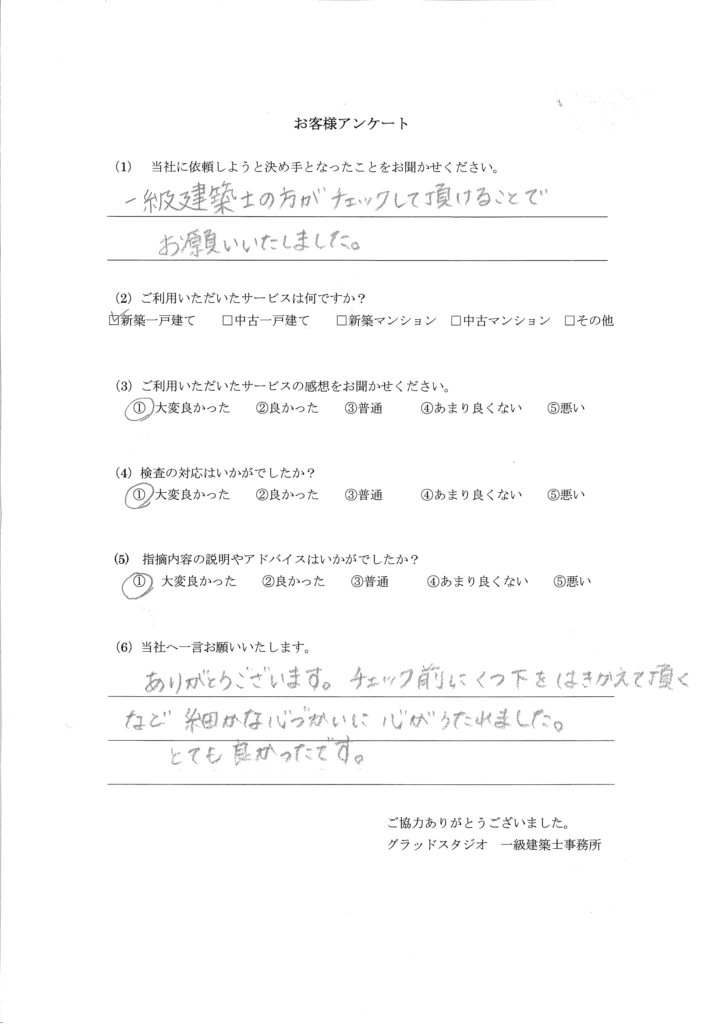 お客様アンケート
(1) 当社に依頼しようと決め手となったことをお聞かせください。
一級建築士の方がチェックして頂けることで
お願いいたしました。
(2) ご利用いただいたサービスは何ですか？
☑新築一戸建て □中古一戸建て □新築マンション □中古マンション □その他
(3) ご利用いただいたサービスの感想をお聞かせください。
① 大変良かった ②良かった ③普通 ④あまり良くない ⑤悪い
(4) 検査の対応はいかがでしたか？
① 大変良かった ②良かった ③普通 ④あまり良くない ⑤悪い
(5) 指摘内容の説明やアドバイスはいかがでしたか？
① 大変良かった ②良かった ③普通 ④あまり良くない ⑤悪い
(6) 当社へ一言お願いいたします。
ありがとうございます。チェック前にくつ下をはきかえて頂く
など 細かな心づかいに 心がうたれました。
とても良かったです。
ご協力ありがとうございました。
グラッドスタジオ 一級建築士事務所